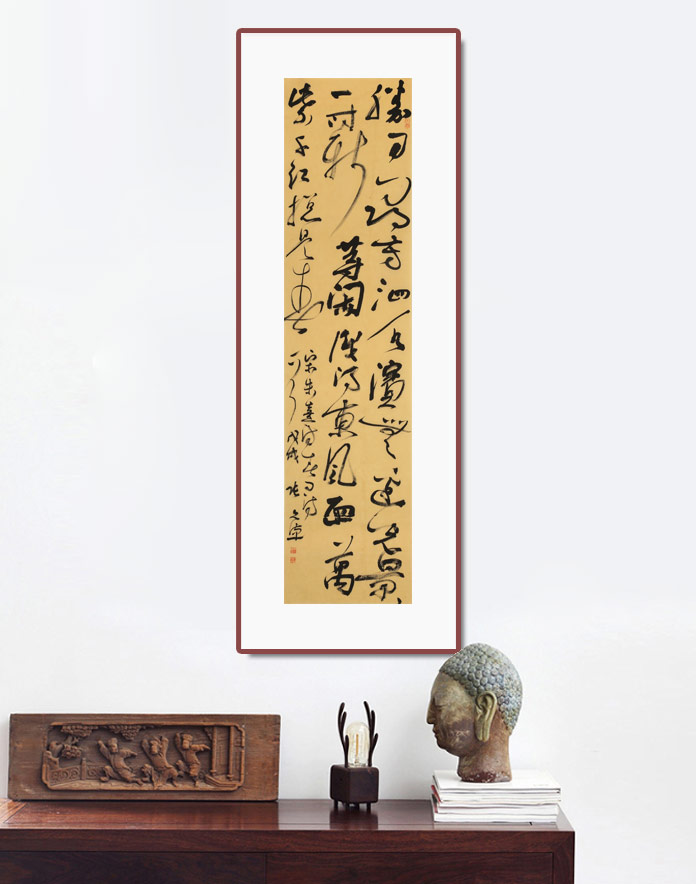 勝日尋芳泗水濱無邊光景
一時新等閑識得東風面萬
紫千紅總是春
宋朱熹詩春日詩
一首戊戌張文